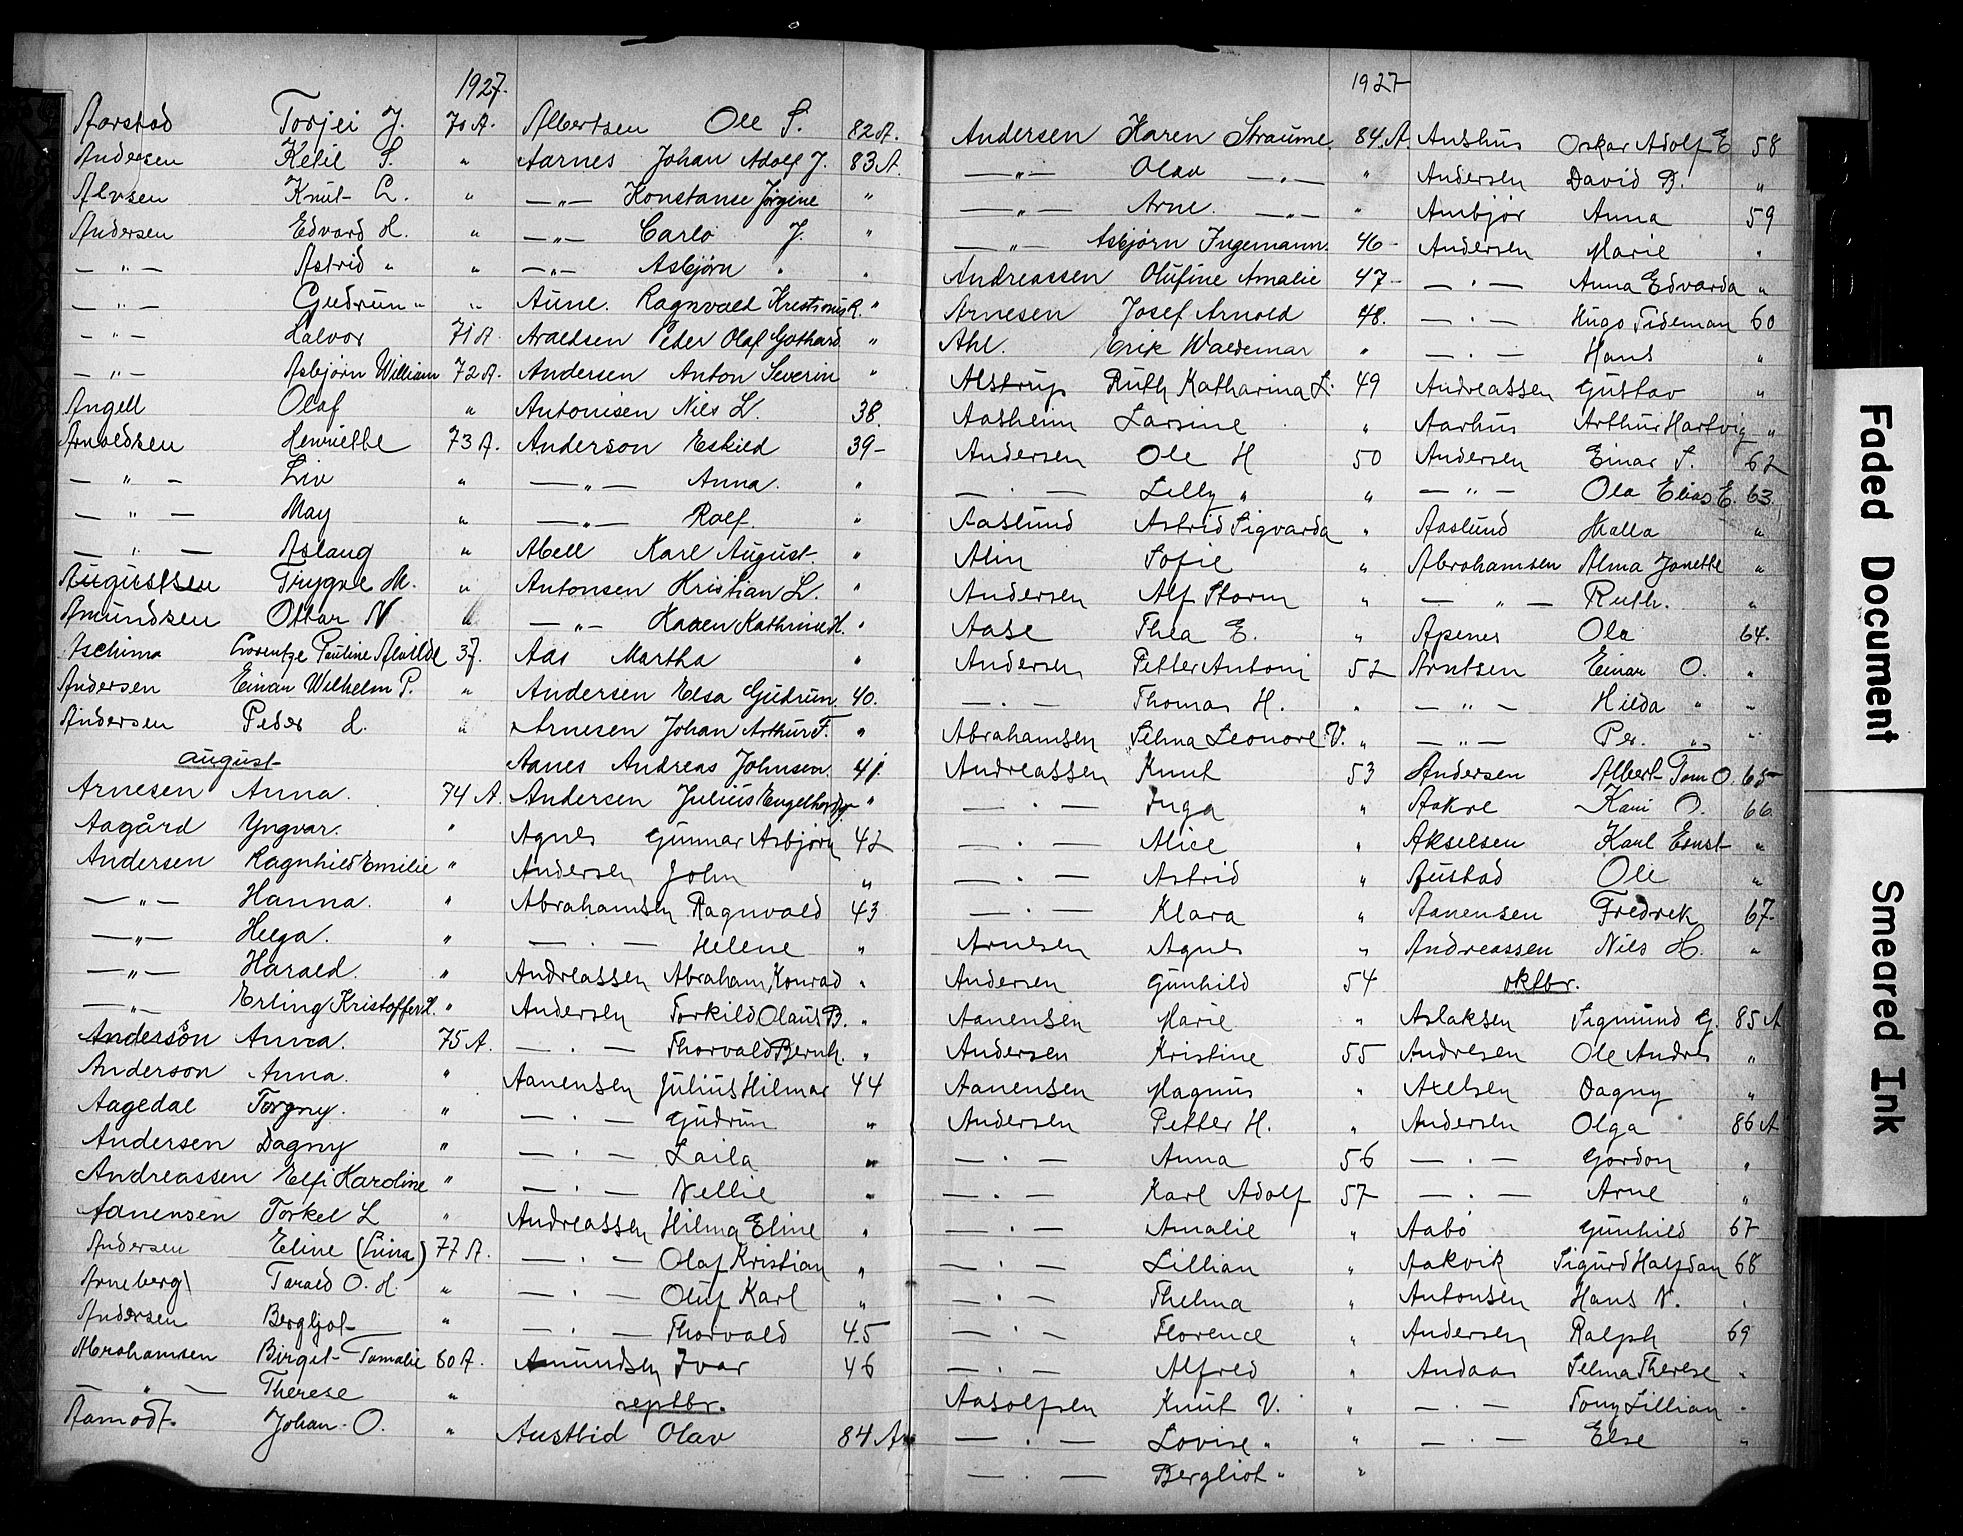 1927.
Aarstad Torjei J. 70 A.
Andersen Ketil S. "
Alvsen Knut L. "
Andersen Edvard H. "
— " — Astrid " "
— " — Gudrun " "
— " — Halvor 71 A.
— " — Asbjørn William 72 A.
Angell Olaf "
Arnoldsen Henriette 73 A.
— " — Liv "
— " — May "
— " — Aslaug "
Augustsen Trygve M. "
Amundsen Ottar N "
Aschima Pauline Alvilde 37.
Andersen Einar Wilhelm P. "
Andersen Peder L. "
august
Arnesen Anna. 74 A.
Aagård Yngvar. "
Andersen Ragnhild Emilie "
— " — Hanna. "
— " — Helga. "
— " — Harald. "
— " — Erling Kristoffer H. "
Anderson Anna. 75 A.
Anderson Anna. "
Aagedal Torgny. "
Andersen Dagny "
Andreassen Elfi Karoline "
Aanensen Torkel L "
Andersen Eline (Lina) 77 A.
Arneberg Tarald O. H. "
Andersen Bergljot "
Abrahamsen Birgit Tomalie 80 A.
— " — Therese "
Aamodt. Johan O. "
Albertsen Ole S. 82 A.
Aarnes Johan Adolf J. 83 A.
— " — Konstanse Jørgine "
— " — Carlo J. "
— " — Asbjørn " "
Aune. Ragnvald Kristinus R. "
Araldsen Peder Olaf Gothard "
Andersen Anton Severin "
Antonisen Nils L. 38.
Anderson Eskild 39 -
— " — Anna. "
— " — Rolf. "
Abell Karl August. "
Antonsen Kristian L. "
— " — Karen Kathrine H. "
Aas Martha "
Andersen Elsa Gudrun. 40.
Arnesen Johan Arthur F. "
Aanes Andreas Johnsen. 41.
Andersen Julius Engelhardt "
Agnes Gunnar Asbjørn 42
Andersen John "
Abrahamsen Ragnvald 43
— " — Helene "
Andreassen Abraham Konrad "
Andersen Torkild Olaus B. "
— " — Thorvald Bernh. "
Aanensen Julius Hilmar 44
— " — Gudrun "
— " — Laila "
— " — Nellie "
Andreassen Hilma Eline "
— " — Olaf Kristian "
— " — Oluf Karl "
— " — Thorvald 45
Amundsen Ivar 46
septbr.
Austbid Olav 84 A
1927
Andersen Karen Straume 84. A.
— " — Olav — " — "
— " — Arne. — " — "
— " — Asbjørn Ingemann. 46 -
Andreassen Olufine Amalie 47 -
Arnesen Josef Arnold 48.
Ahl. Erik Waldemar "
Alstrup Ruth Katharina L. 49
Aasheim Larsine "
Andersen Ole H 50
— " — Lilly " "
Aaslund Astrid Sigvarda "
Alin Sofie "
Andersen Alf Storm "
Aase Thea E. "
Andersen Petter Antoni 52
— " — Thomas H. "
Abrahamsen Selma Leonore V. "
Andreassen Knut 53
— " — Inga "
— " — Alice "
— " — Astrid "
— " — Klara "
Arnesen Agnes "
Andersen Gunhild 54
Aanensen Marie "
Andersen Kristine 55
Aanensen Magnus "
Andersen Petter H. "
— " — Anna 56
— " — Karl Adolf 57
— " — Amalie "
— " — Lillian "
— " — Thelma "
— " — Florence "
— " — Alfred "
Aasolfsen Knut V. "
— " — Lovise " "
— " — Bergliot " "
Aushus Oskar Adolf E 58
Andersen David B. "
Ambjør Anna 59
Andersen Marie "
— " — Anna Edvarda "
— " — Hugo Tideman 60
— " — Hans "
Andreassen Gustav "
Aarhus Arthur Hartvig "
Andersen Einar S. 62
— " — Ola Elias E. 63
Aaslund Malla "
Abrahamsen Alma Janette "
— " — Ruth. "
Apenes Ola 64.
Arntsen Einar O. "
— " — Hilda " "
— " — Per. " "
Andersen Albert Tom O. 65
Aakre Kari O. 66.
Akselsen Karl Ernst "
Austad Ole "
Aanensen Fredrek 67-
Andreassen Nils H. "
oktbr.
Aslaksen Sigmund G. 85 A
Andresen Ole Andres "
Axelsen Dagny "
Andersen Olga 86 A
— " — Gordon "
— " — Arne "
Aabø Gunhild 67
Aakvik Sigurd Halfdan 68
Antonsen Hans N. "
Andersen Ralph 69
Andaas Selma Therese "
— " — Tony Lillian "
— " — Else "
Faded Document
Smeared Ink